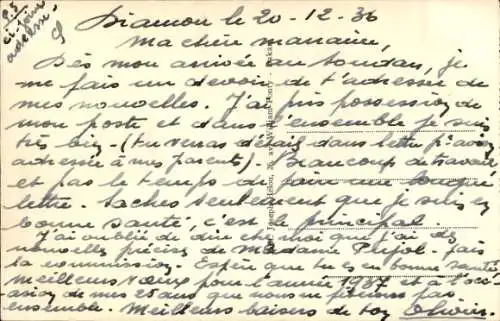 P.S
ci-joint
adresse
Diamou le 20-12-36
Ma chère marraine,
Dès mon arrivée au Soudan, je
me fais un devoir de t'adresser de
mes nouvelles. J'ai pris possession de
mon poste et dans l'ensemble je suis
très bien (tu verras détails dans lettre
adressée à mes parents). Beaucoup de travail
et pas le temps de faire une longue
lettre. Saches seulement que je suis en
bonne santé, c'est le principal.
J'ai oublié de dire chez moi que j'ai des
nouvelles Madame - fais
la commission. Espère que tu es en bonne santé
meilleurs vœux pour l'année 1937 et à l'occ-
asion de mes 25 ans que nous ne fêterons pas
ensemble. Meilleurs baisers de ton